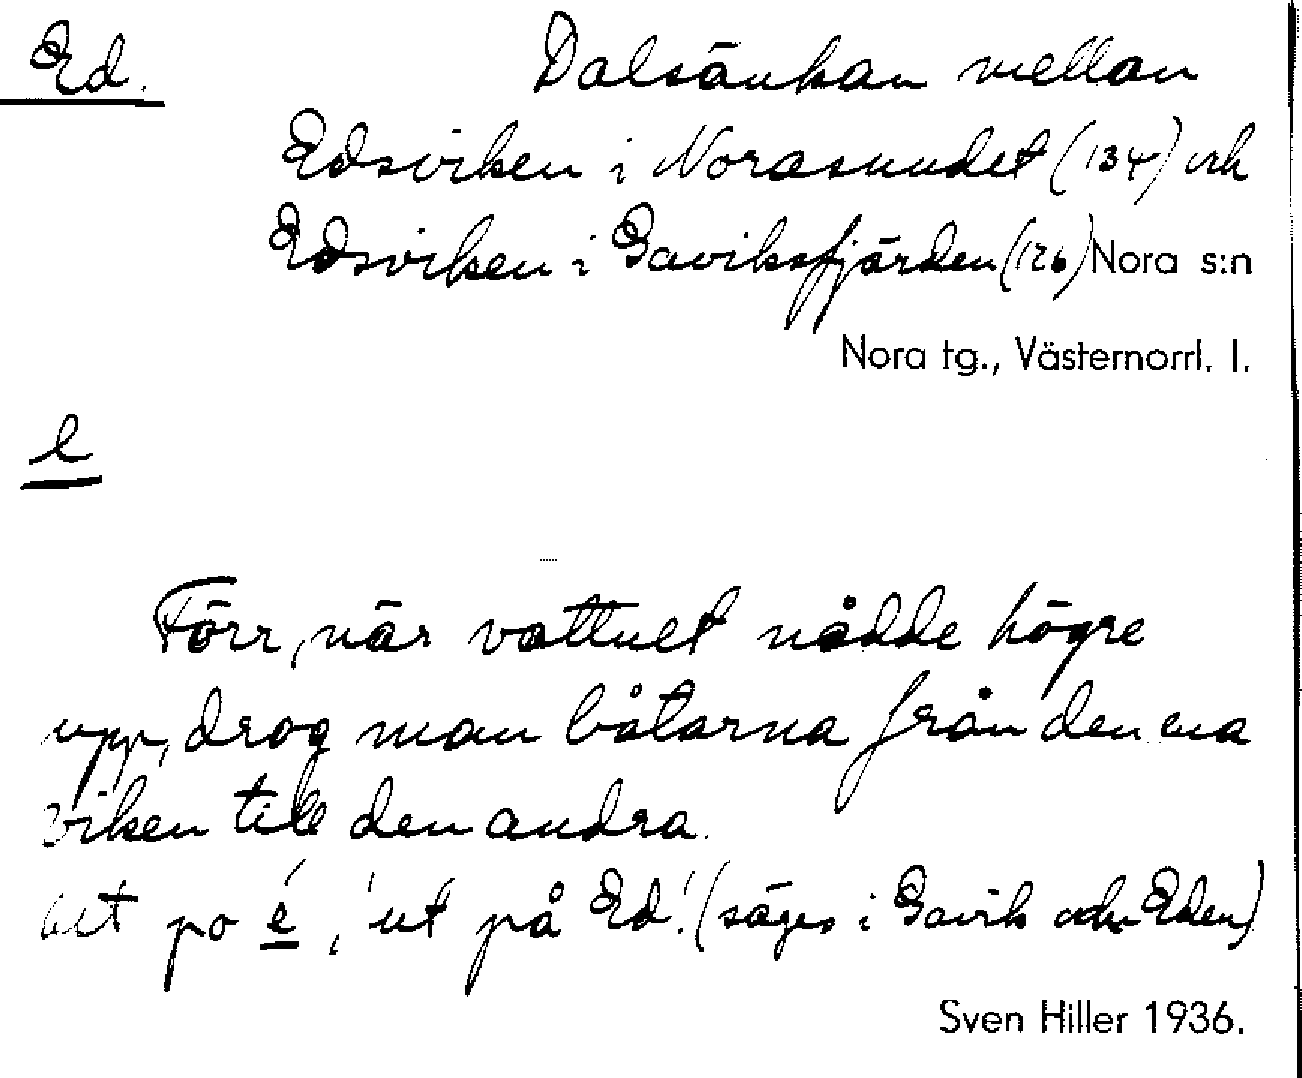 Ed.
Dalsänkan mellan
Edsviken i Norasundet (134) och
Edsviken i Gaviksfjärden (126) Nora s:n
Nora tg., Västernorrl. l.
e
Förr, när vattnet nådde högre
upp, drog man båtarna från den ena
viken till den andra.
ut po é, 'ut på Ed'. (säges i Gavik och Eden)
Sven Hiller 1936.